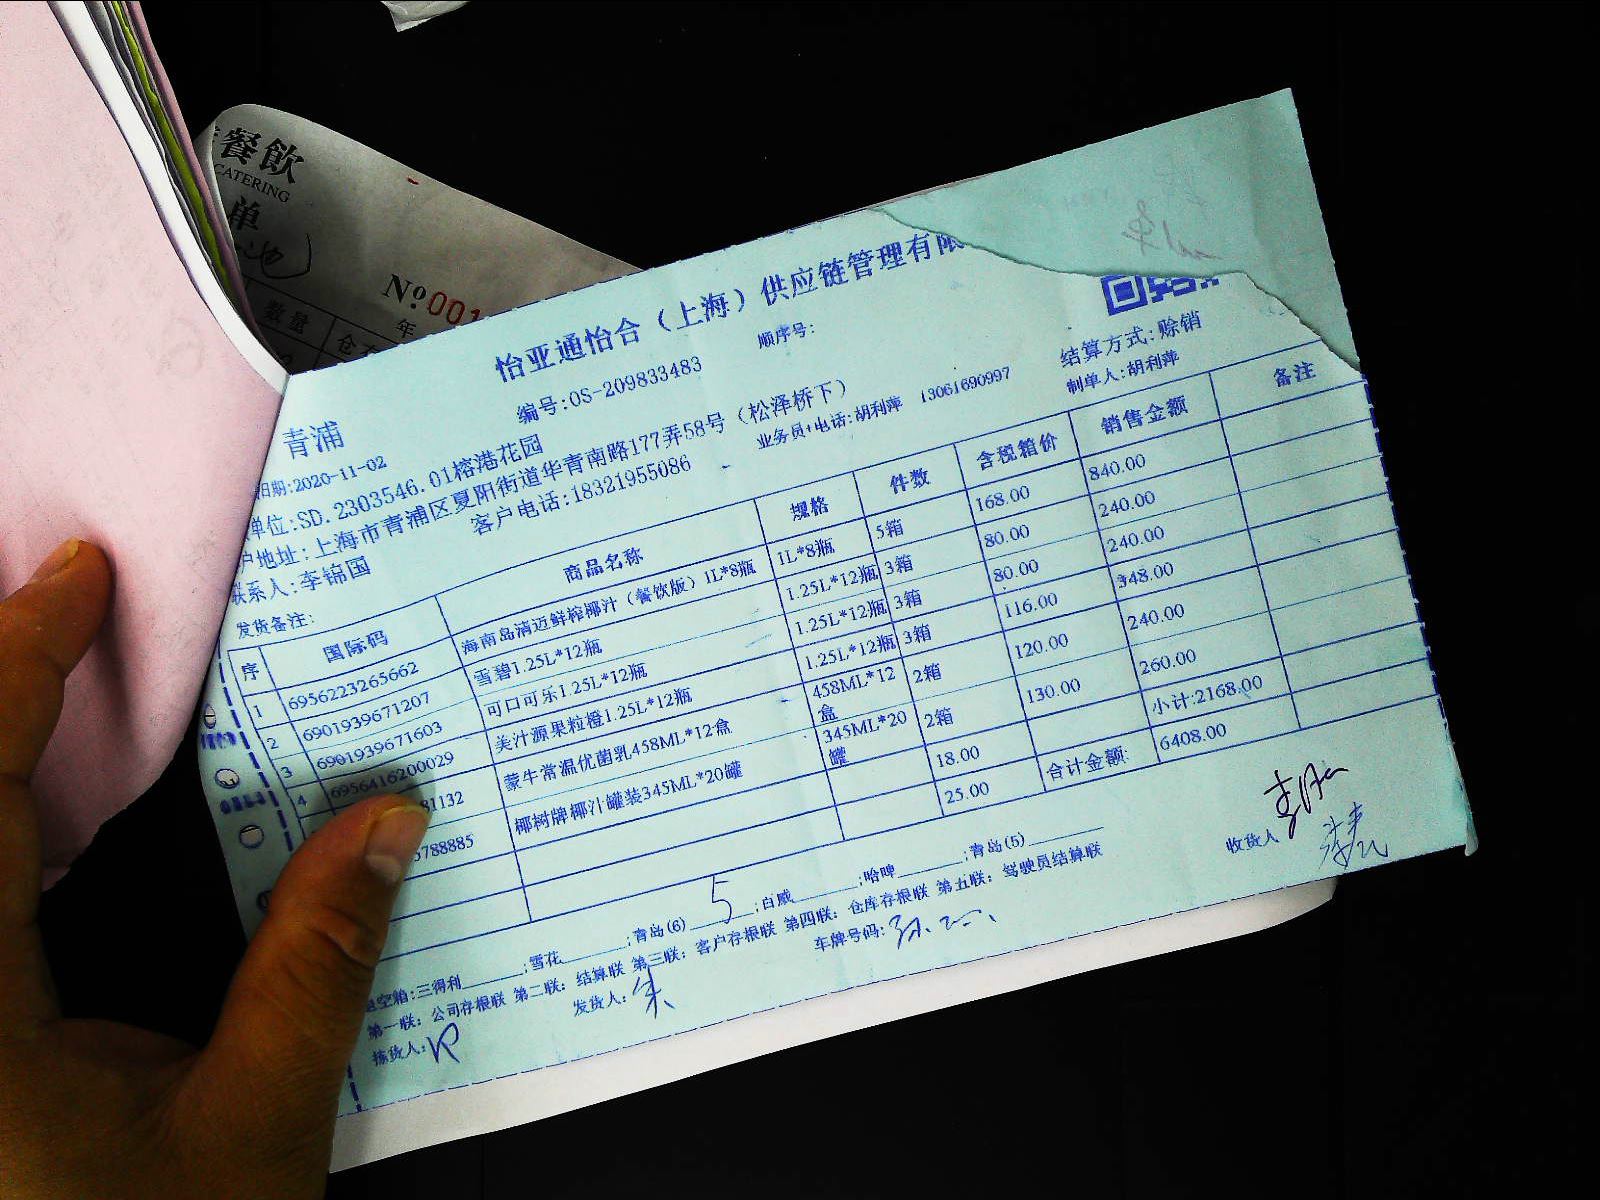 餐飲
CATERING
单
№001
年
数量
怡亚通怡合（上海）供应链管理有限
编号:OS-209833483
顺序号:
青浦
日期:2020-11-02
单位:SD.2303546.01榕港花园
结算方式:赊销
户地址:上海市青浦区夏阳街道华青南路177弄58号（松泽桥下）
业务员+电话:胡利萍 13061690997
制单人:胡利萍
联系人:李锦国
客户电话:18321955086
发货备注:
序 国际码 商品名称 规格 件数 含税箱价 销售金额 备注
1 6956223265662 海南岛清迈鲜榨椰汁（餐饮版）1L*8瓶 1L*8瓶 5箱 168.00 840.00
2 6901939671207 雪碧1.25L*12瓶 1.25L*12瓶 3箱 80.00 240.00
3 6901939671603 可口可乐1.25L*12瓶 1.25L*12瓶 3箱 80.00 240.00
4 6956416200029 美汁源果粒橙1.25L*12瓶 1.25L*12瓶 3箱 116.00 348.00
81132 蒙牛常温优菌乳458ML*12盒 458ML*12盒 2箱 120.00 240.00
5788885 椰树牌椰汁罐装345ML*20罐 345ML*20罐 2箱 130.00 260.00
18.00 小计:2168.00
25.00 合计金额: 6408.00
退空箱:三得利______;雪花______;青岛(6) 5 ;百威______;哈啤______;青岛(5)______
第一联: 公司存根联 第二联: 结算联 第三联: 客户存根联 第四联: 仓库存根联 第五联: 驾驶员结算联
拣货人:
发货人: 朱
车牌号码:
收货人